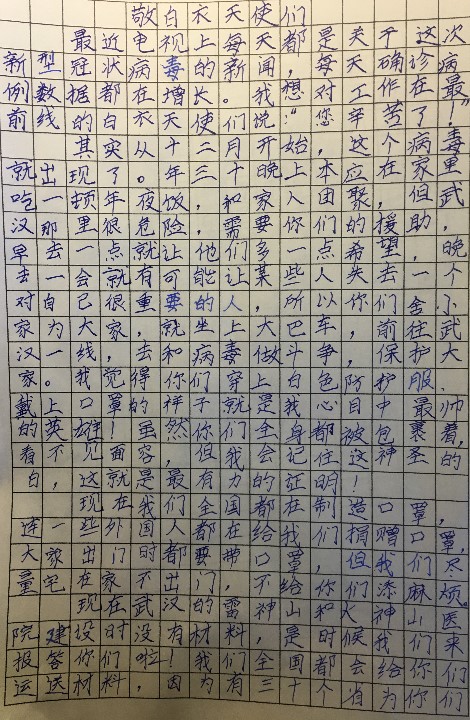 敬白衣天使们
最近电视上每天都是关于这次
新型冠状病毒的新闻，每天确诊病
例数据都在增长。我想对工作在最
前线的白衣天使们说：“您辛苦了！”
其实从十二月开始，这个病毒
就出现了。年三十晚上本应在家里
吃一顿年夜饭，和家人团聚，但武
汉那里很危险，需要你们的援助，
早去一点就让他们多一点希望，晚
去一会就有可能让某些人失去一个
对自己很重要的人，所以你们舍小
家为大家，就坐上大巴车，前往武
汉一线，去和病毒做斗争，保护大
家。我觉得你们穿上白色防护服、
戴上口罩的样子就是我心目中最帅
的英雄！虽然你们全身都被包裹着，
看不见面容，但我会记住这神圣的
白，这就是最有力的证明！
现在我们全国都在制造口罩，
连一些外国人都在给我们捐赠口罩，
大家出门时都要带口罩，但我们尽
量宅在家不出门，不给你们添麻烦。
现在武汉的雷神山和火神山医
院建设时没有材料，是时候我们来
报答你们啦！我们全国都会给你们
运送材料，因为有三十个省为你们